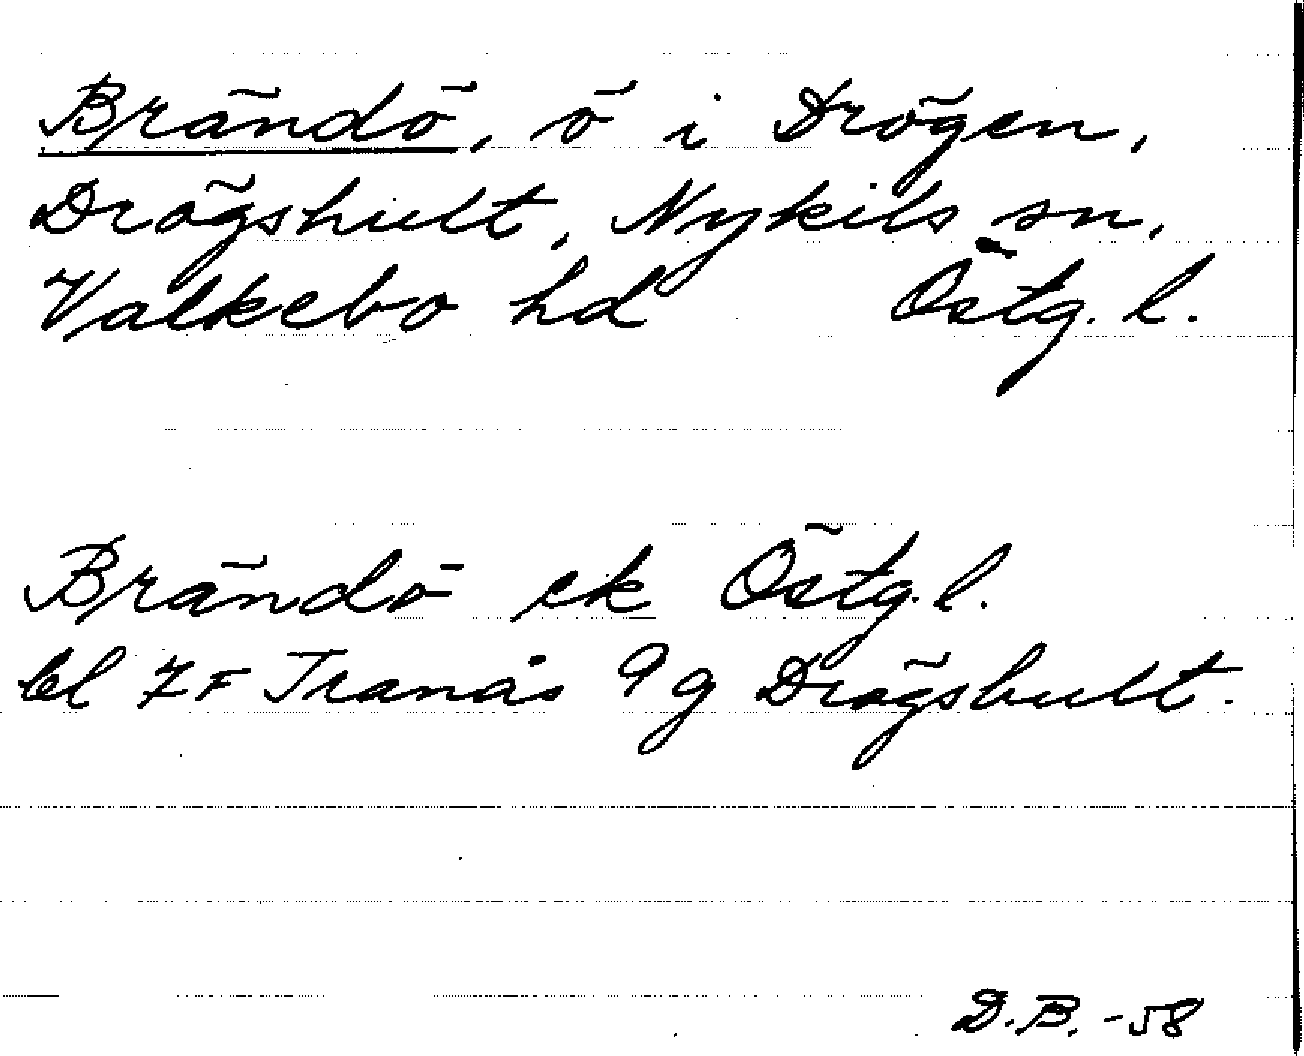 Brändö, ö i Drögen,
Drögshult, Nykils sn,
Valkebo hd Östg. l.
Brändö ek Östg. l.
bl 7F Tranås 9 g Drögshult.
D.B. -58